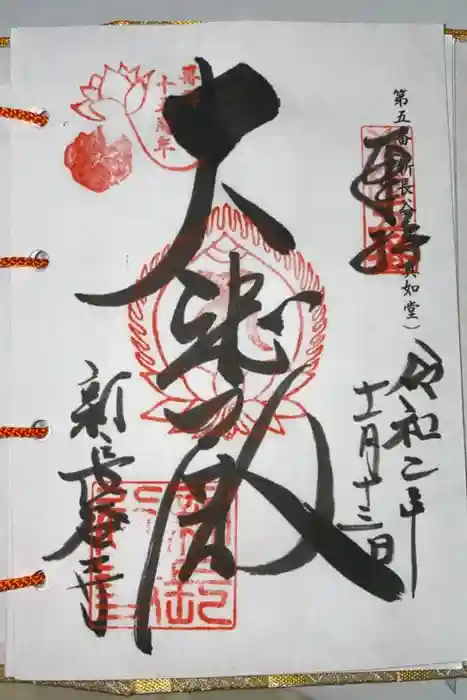 第五番 新長谷寺(真如堂)
奉拝
令和二年
十一月十三日
大悲殿
新長谷寺